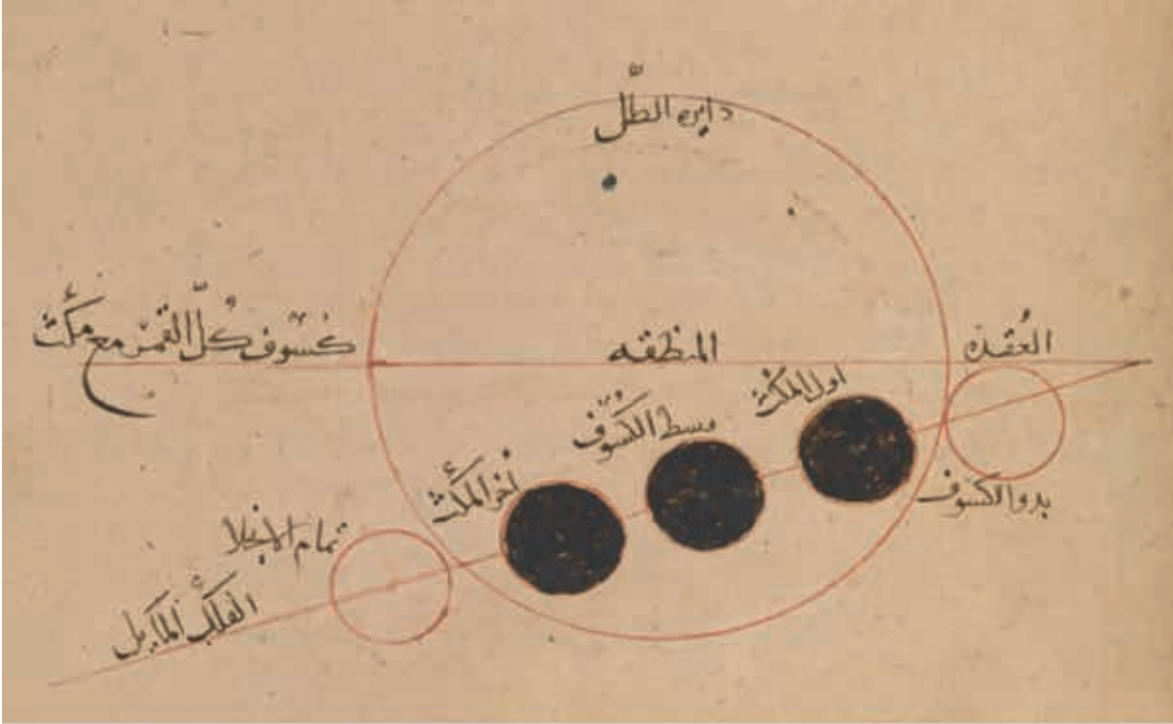 دايره الظل
كسوف كل القمر مع مكث
المنطقه
العقده
اول المكث
وسط الكسوف
اخر المكث
بدو الكسوف
تمام الانجلا
الفلك المايل